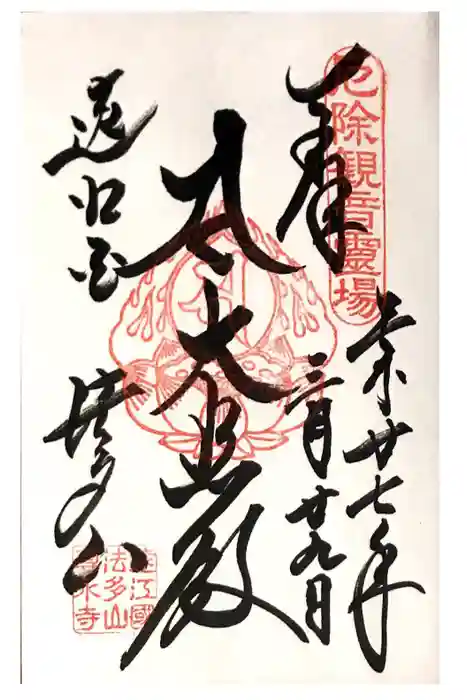 厄除観音靈場
奉拝
平成廿七年
三月廿九日
大悲殿
遠江国
法多山
遠江國
法多山
尊永寺